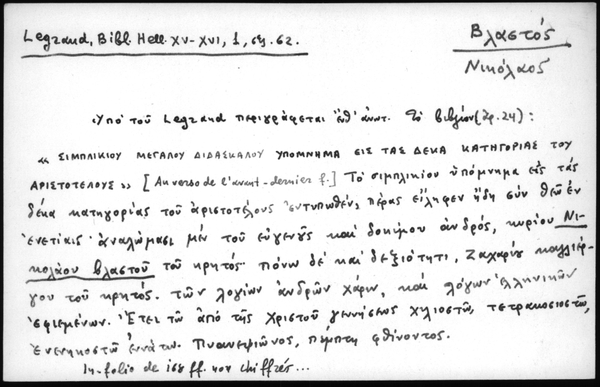 Legrand, Bibl. Hell. XV-XVI, 1, σελ. 62.
Βλαστός
Νικόλαος
Ὑπὸ τοῦ Legrand περιγράφεται τὸ βιβλίον (ἀρ. 24) :
« ΣΙΜΠΛΙΚΙΟΥ ΜΕΓΑΛΟΥ ΔΙΔΑΣΚΑΛΟΥ ΥΠΟΜΝΗΜΑ ΕΙΣ ΤΑΣ ΔΕΚΑ ΚΑΤΗΓΟΡΙΑΣ ΤΟΥ
ΑΡΙΣΤΟΤΕΛΟΥΣ » [Au verso de l'avant-dernier f.] Τὸ σιμπλικίου ὑπόμνημα εἰς τάς
δέκα κατηγορίας τοῦ ἀριστοτέλους ἐντυπωθέν, πέρας εἴληφεν ἤδη σὺν θεῷ ἐν
ἐνετίαις· ἀναλώμασι μέν τοῦ εὐγενοῦς καὶ δοκίμου ἀνδρός, κυρίου Νι-
κολάου βλαστοῦ τοῦ κρητός· πόνῳ δέ καὶ δεξιότητι, Ζαχαρίου καλλιέρ-
γου τοῦ κρητός. τῶν λογίων ἀνδρῶν χάριν, καὶ λόγων ἑλληνικῶν
ἐφιεμένων. Ἔτει τῷ ἀπὸ τῆς Χριστοῦ γεννήσεως χιλιοστῷ, τετρακοσιοστῷ,
ἐνενηκοστῷ ἐννάτῳ. Πυανεψιῶνος, πέμπτῃ φθίνοντος.
In-folio de 168 ff. non chiffrés...